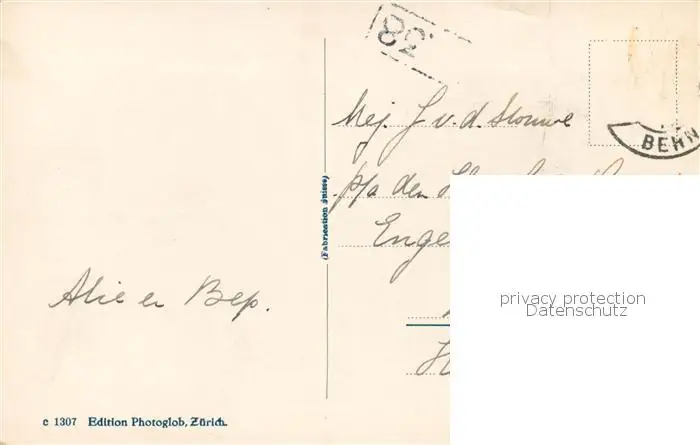 82
BERN
Mej. J v. d. Stouwe
p/a den
Enge
Alie en Bep.
(Fabrication Suisse)
privacy protection
Datenschutz
c 1307 Edition Photoglob, Zürich.